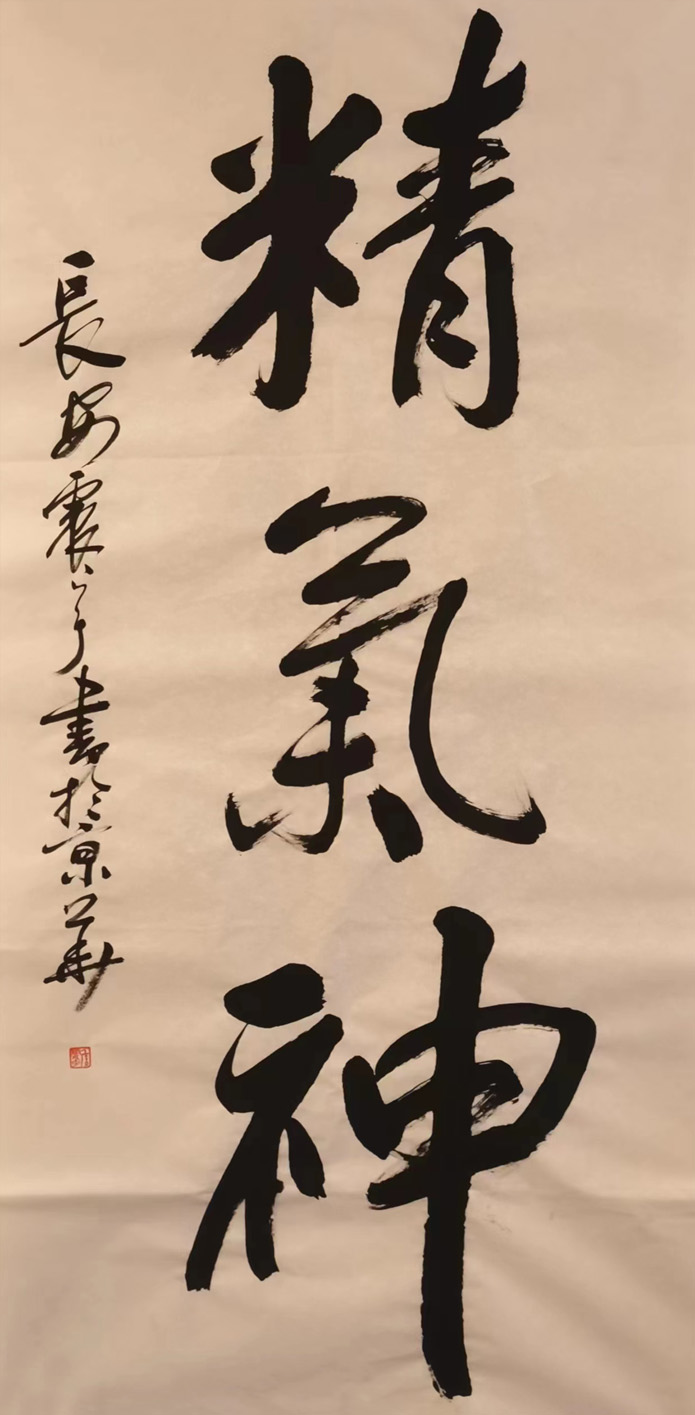 精氣神
長安震今书書於京華